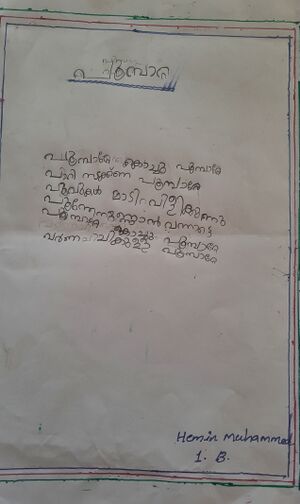 പൂമ്പാറ്റ
പൂമ്പാറ്റേ കൊച്ചു പൂമ്പാറ്റേ
പാറി നടക്കണ പൂമ്പാറ്റേ
പൂവുകൾ മാടി വിളിക്കുന്നു
പൂന്തേനുണ്ണാൻ വന്നാട്ടെ
പൂമ്പാറ്റേ കൊച്ചു പൂമ്പാറ്റേ
വർണചിറകുള്ള പൂമ്പാറ്റേ
Hemin Muhammed
1. B.